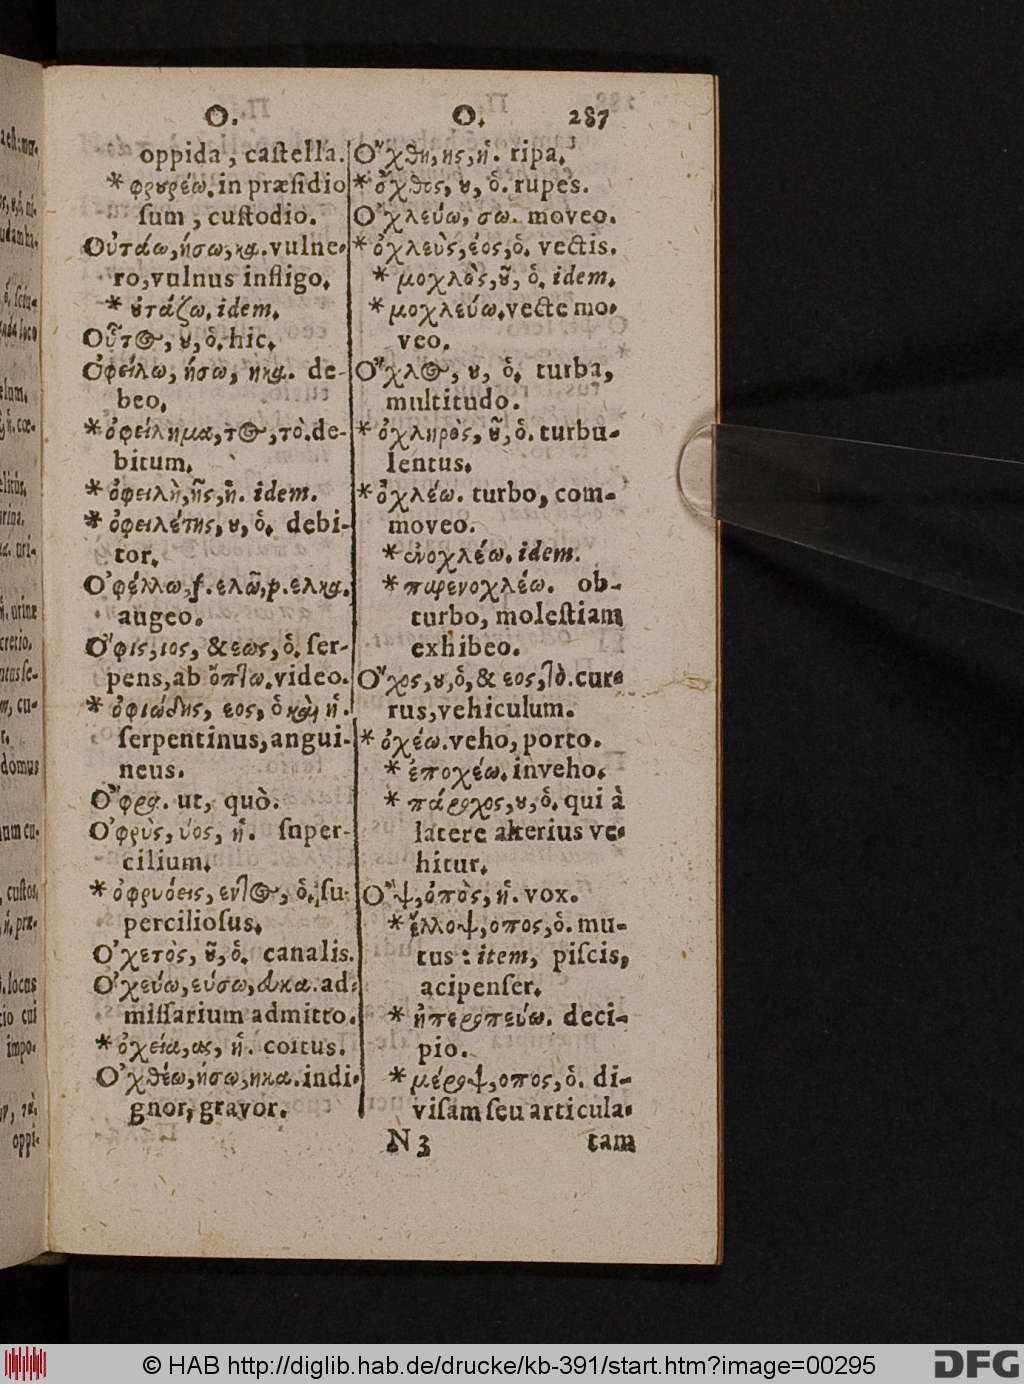 O.
O. 287
oppida, castella.
* φρυρέω. in præsidio
sum, custodio.
Οὐτάω, ήσω, κα. vulne-
ro, vulnus infligo.
* ȣ̓τάζω. idem.
Οὗτος, ȣ, ὁ. hic.
Ὀφείλω, ήσω, ηκα. de-
beo.
* ὀφείλημα, τος, τὸ. de-
bitum.
* ὀφειλὴ, ῆς, ἡ. idem.
* ὀφειλέτης, ȣ, ὁ. debi-
tor.
Ὀφέλλω, f. ελῶ, p. ελκα.
augeo.
Ὄφις, ιος, & εως, ὁ. ser-
pens, ab ὄπτω. video.
* ὀφιώδης, εος, ὁ καὶ ἡ.
serpentinus, angui-
neus.
Ὄφρα. ut, quò.
Ὀφρὺς, ύος, ἡ. super-
cilium.
* ὀφρυόεις, εντος, ὁ. su-
perciliosus.
Ὀχετὸς, ȣ͂, ὁ. canalis.
Ὀχεύω, εύσω, ευκα. ad-
missarium admitto.
* ὀχεία, ας, ἡ. coitus.
Ὀχθέω, ήσω, ηκα. indi-
gnor, gravor.
Ὄχθη, ης, ἡ. ripa.
* ὄχθος, ȣ, ὁ. rupes.
Ὀχλεύω, σω. moveo.
* ὀχλεὺς, έος, ὁ. vectis.
* μοχλὸς, ȣ͂, ὁ. idem.
* μοχλεύω. vecte mo-
veo.
Ὄχλος, ȣ, ὁ. turba,
multitudo.
* ὀχληρὸς, ȣ͂, ὁ. turbu-
lentus.
* ὀχλέω. turbo, com-
moveo.
* ἐνοχλέω. idem.
* παρενοχλέω. ob-
turbo, molestiam
exhibeo.
Ὄχος, ȣ, ὁ, & εος, τὸ. cur-
rus, vehiculum.
* ὀχέω. veho, porto.
* ἐποχέω. inveho.
* πάροχος, ȣ, ὁ. qui à
latere alterius ve-
hitur.
Ὄψ, ὀπὸς, ἡ. vox.
* ἔλλοψ, οπος, ὁ. mu-
tus: item, piscis,
acipenser.
* ἠπεροπεύω. deci-
pio.
* μέροψ, οπος, ὁ. di-
visam seu articula-
N 3 tam
© HAB http://diglib.hab.de/drucke/kb-391/start.htm?image=00295
DFG